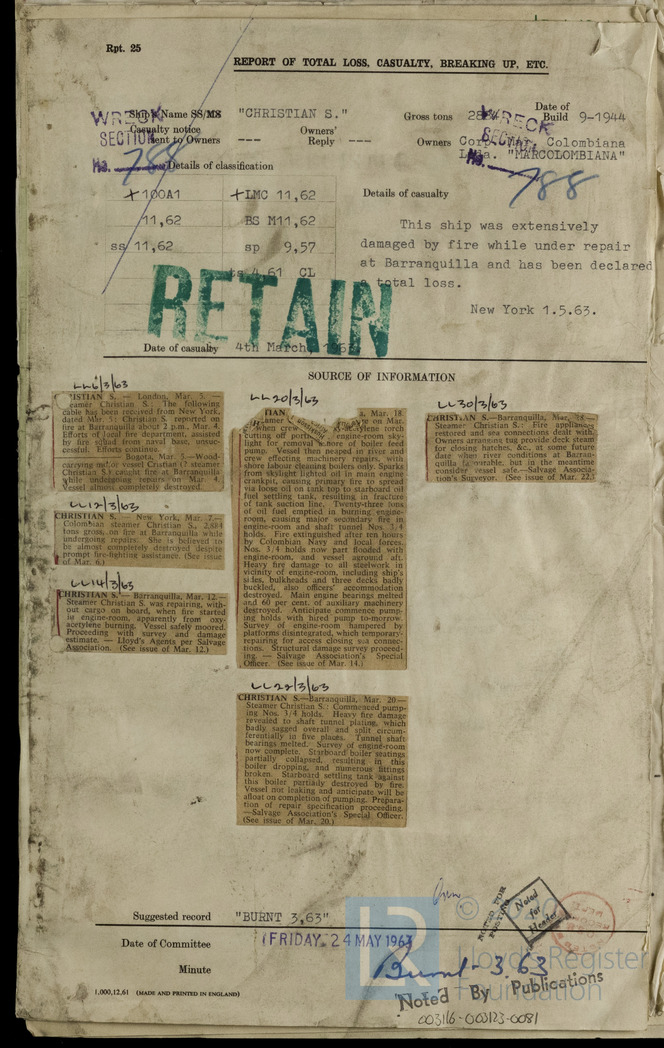 Rpt. 25
REPORT OF TOTAL LOSS, CASUALTY, BREAKING UP, ETC.
Ship's Name SS/MS "CHRISTIAN S."
Gross tons 2884
Date of Build 9-1944
WRECK SECTION
No. 788
Casualty notice sent to Owners ---
Owners' Reply ---
Owners Corp. Mar. Colombiana
Ltda. "MARCOLOMBIANA"
WRECK SECTION
No. 788
Details of classification
+100A1 +LMC 11,62
11,62 BS M11,62
ss 11,62 sp 9,57
ts 4,61 CL
Details of casualty
This ship was extensively
damaged by fire while under repair
at Barranquilla and has been declared
total loss.
New York 1.5.63.
RETAIN
Date of casualty 4th March, 1963
SOURCE OF INFORMATION
LL 6/3/63
ISTIAN S. — London, Mar. 5. —
eamer Christian S.: The following
cable has been received from New York,
dated Mar. 5: Christian S. reported on
fire at Barranquilla about 2 p.m. Mar. 4.
Efforts of local fire department, assisted
by fire squad from naval base, unsuc-
cessful. Efforts continue.
Bogota, Mar. 5.—Wood-
carrying motor vessel Cristian (? steamer
Christian S.) caught fire at Barranquilla
while undergoing repairs on Mar. 4.
Vessel almost completely destroyed.
LL 12/3/63
CHRISTIAN S. — New York, Mar. 7.—
Colombian steamer Christian S., 2,884
tons gross, on fire at Barranquilla while
undergoing repairs. She is believed to
be almost completely destroyed despite
prompt fire-fighting assistance. (See issue
of Mar. 6.)
LL 14/3/63
CHRISTIAN S.—Barranquilla, Mar. 12.—
Steamer Christian S. was repairing, with-
out cargo on board, when fire started
in engine-room, apparently from oxy-
acetylene burning. Vessel safely moored.
Proceeding with survey and damage
estimate. — Lloyd's Agents per Salvage
Association. (See issue of Mar. 12.)
LL 20/3/63
TIAN a, Mar. 18.
eamer e on Mar.
when crew cetylene torch
cutting off port engine-room sky-
light for removal ore of boiler feed
pump. Vessel then neaped in river and
crew effecting machinery repairs, with
shore labour cleaning boilers only. Sparks
from skylight lighted oil in main engine
crankpit, causing primary fire to spread
via loose oil on tank top to starboard oil
fuel settling tank, resulting in fracture
of tank suction line. Twenty-three tons
of oil fuel emptied in burning engine-
room, causing major secondary fire in
engine-room and shaft tunnel Nos. 3/4
holds. Fire extinguished after ten hours
by Colombian Navy and local forces.
Nos. 3/4 holds now part flooded with
engine-room, and vessel aground aft.
Heavy fire damage to all steelwork in
vicinity of engine-room, including ship's
sides, bulkheads and three decks badly
buckled, also officers' accommodation
destroyed. Main engine bearings melted
and 60 per cent. of auxiliary machinery
destroyed. Anticipate commence pump-
ing holds with hired pump to-morrow.
Survey of engine-room hampered by
platforms disintegrated, which temporary-
repairing for access closing sea connec-
tions. Structural damage survey proceed-
ing. — Salvage Association's Special
Officer. (See issue of Mar. 14.)
LL 22/3/63
CHRISTIAN S.—Barranquilla, Mar. 20.—
Steamer Christian S.: Commenced pump-
ing Nos. 3/4 holds. Heavy fire damage
revealed to shaft tunnel plating, which
badly sagged overall and split circum-
ferentially in five places. Tunnel shaft
bearings melted. Survey of engine-room
now complete. Starboard boiler seatings
partially collapsed, resulting in this
boiler dropping, and numerous fittings
broken. Starboard settling tank against
this boiler partially destroyed by fire.
Vessel not leaking and anticipate will be
afloat on completion of pumping. Prepara-
tion of repair specification proceeding.
—Salvage Association's Special Officer.
(See issue of Mar. 20.)
LL 30/3/63
CHRISTIAN S.—Barranquilla, Mar. 28.—
Steamer Christian S.: Fire appliances
restored and sea connections dealt with.
Owners arranging tug provide deck steam
for closing hatches, &c., at some future
date when river conditions at Barran-
quilla favourable, but in the meantime
consider vessel safe.—Salvage Associa-
tion's Surveyor. (See issue of Mar. 22.)
Suggested record "BURNT 3,63"
NOTED FOR POSTING
Noted for Header
Date of Committee FRIDAY, 24 MAY 1963
Minute Burnt - 3.63
Noted By Publications
003116-003123-0081
1,000,12,61 (MADE AND PRINTED IN ENGLAND)
© 2020
Lloyd's Register
Foundation